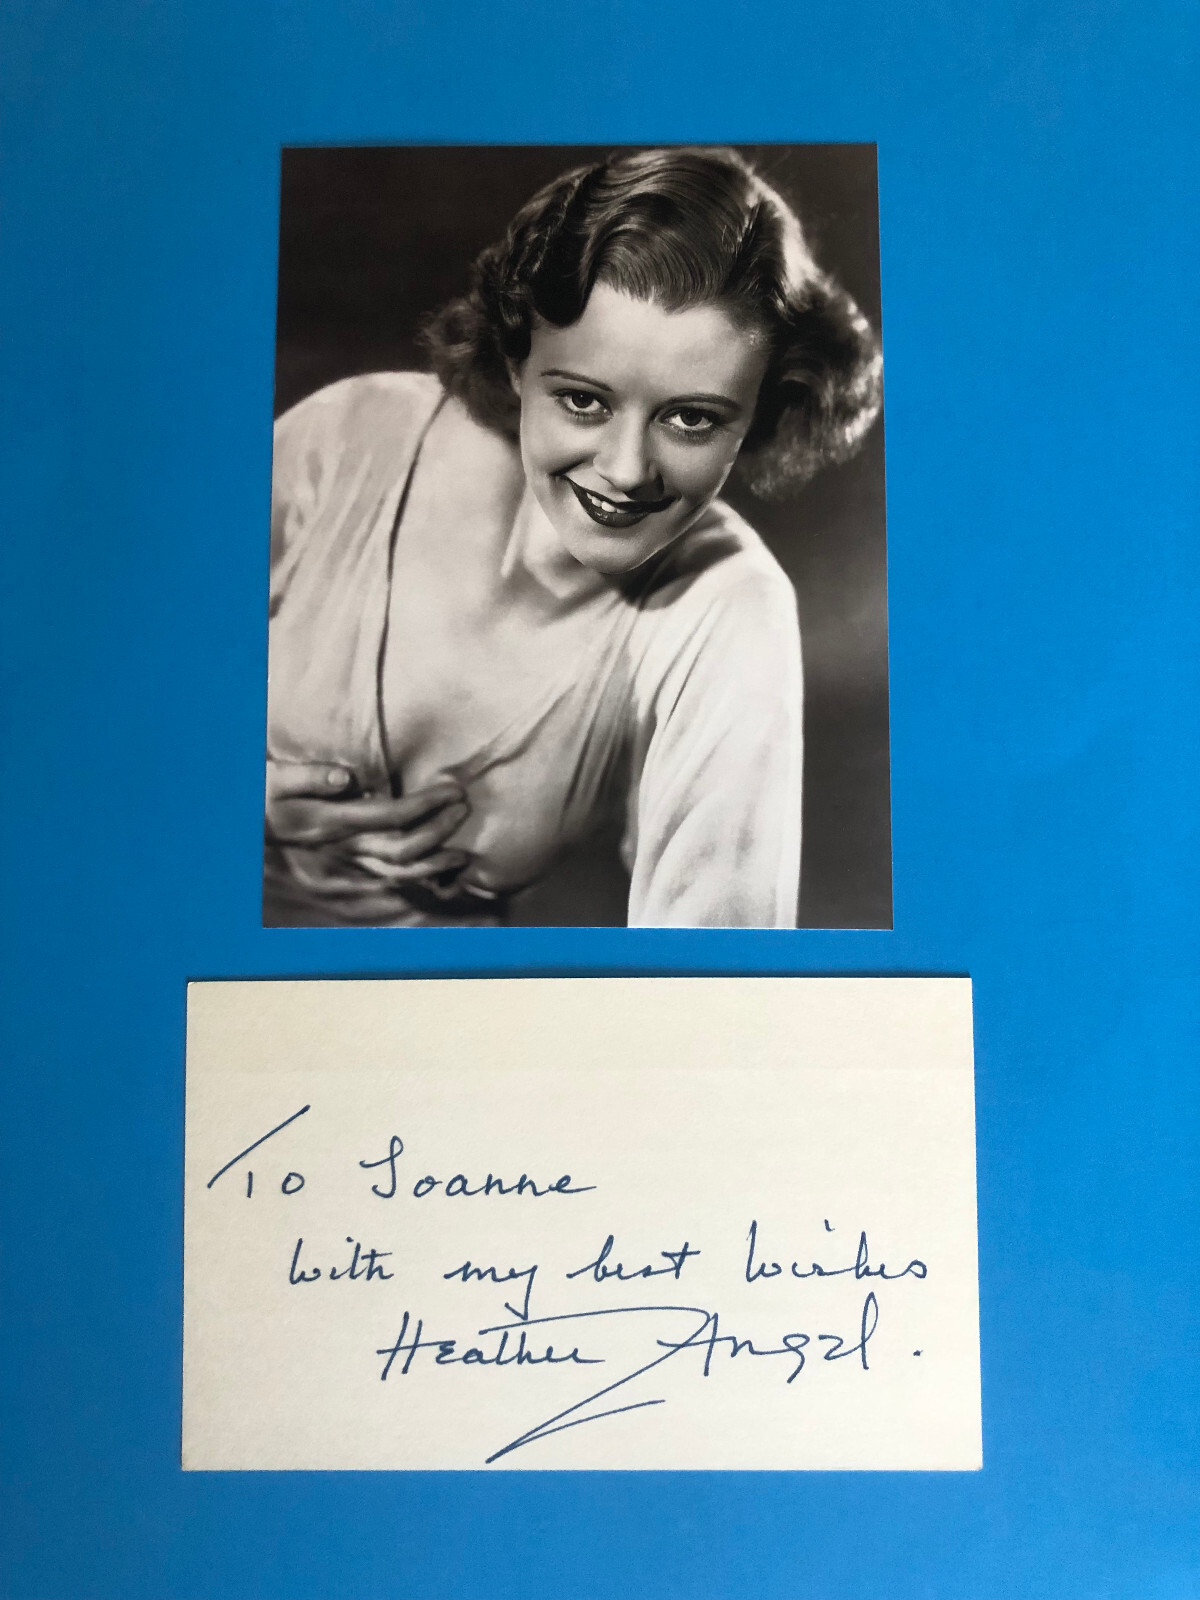 To Joanne
With my best wishes
Heather Angel.